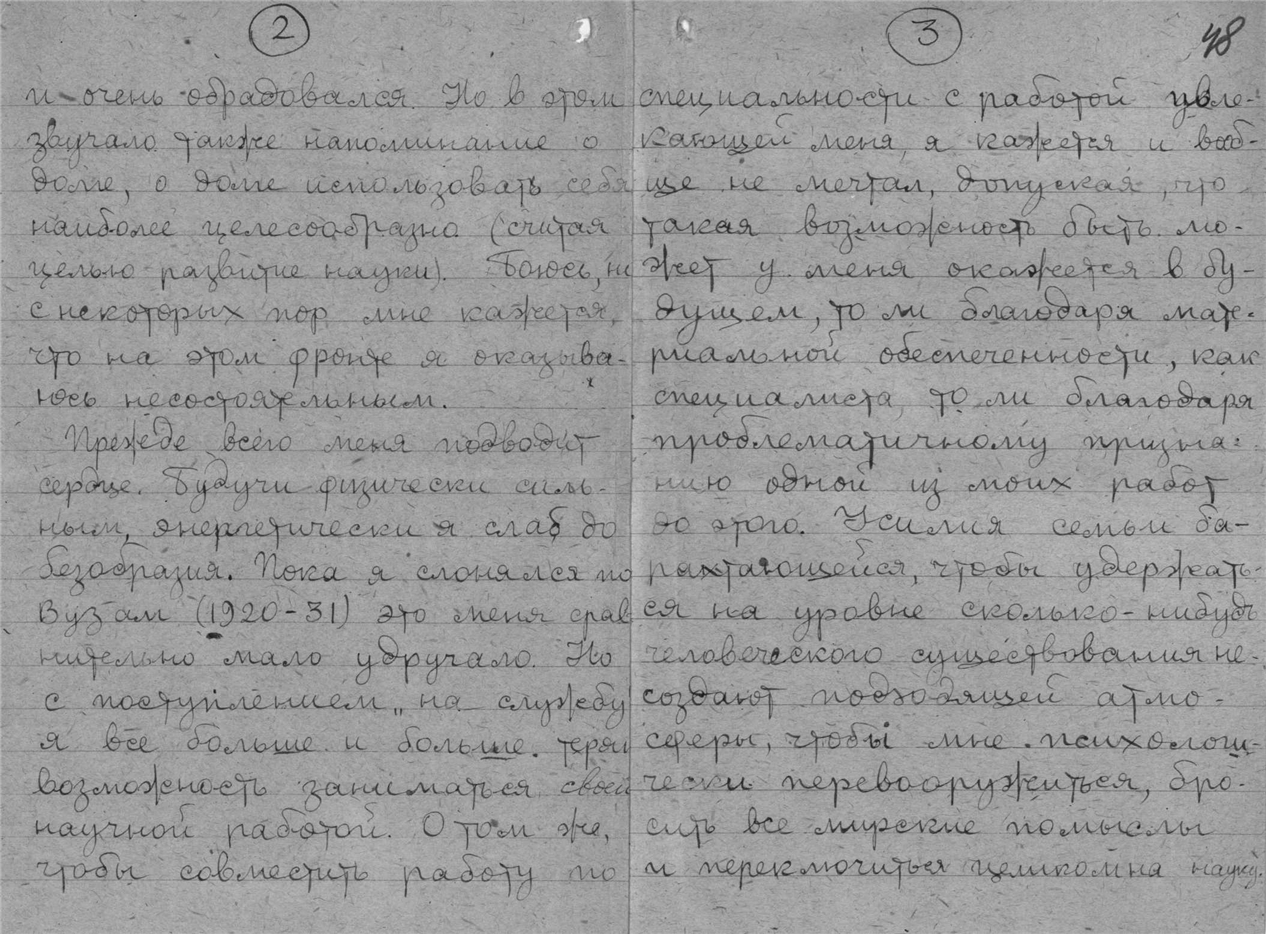 2
и очень обрадовался. Но в этом
звучало также напоминание о
долге, о долге использовать себя
наиболее целесообразно (считая
целью развитие науки). Боюсь, ни
с некоторых пор мне кажется,
что на этом фронте я оказыва-
юсь несостоятельным.
Прежде всего меня подводит
сердце. Будучи физически силь-
ным, энергетически я слаб до
безобразия. Пока я слонялся по
Вузам (1920-31) это меня срав
нительно мало удручало. Но
с поступлением на службу
я все больше и больше терял
возможность заниматься своей
научной работой. О том же,
чтобы совместить работу по
3
48
специальности с работой увле-
кающей меня, я кажется и вооб-
ще не мечтал, допуская, что
такая возможность быть мо-
жет у меня окажется в бу-
дущем, то ли благодаря мате-
риальной обеспеченности, как
специалиста, то ли благодаря
проблематичному призна-
нию одной из моих работ
до этого. Усилия семьи ба-
рахтающейся, чтобы удержать-
ся на уровне сколько-нибудь
человеческого существования не-
создают подходящей атмо-
сферы, чтобы мне психологи-
чески перевооружиться, бро-
сить все мирские помыслы
и переключиться целиком на науку.